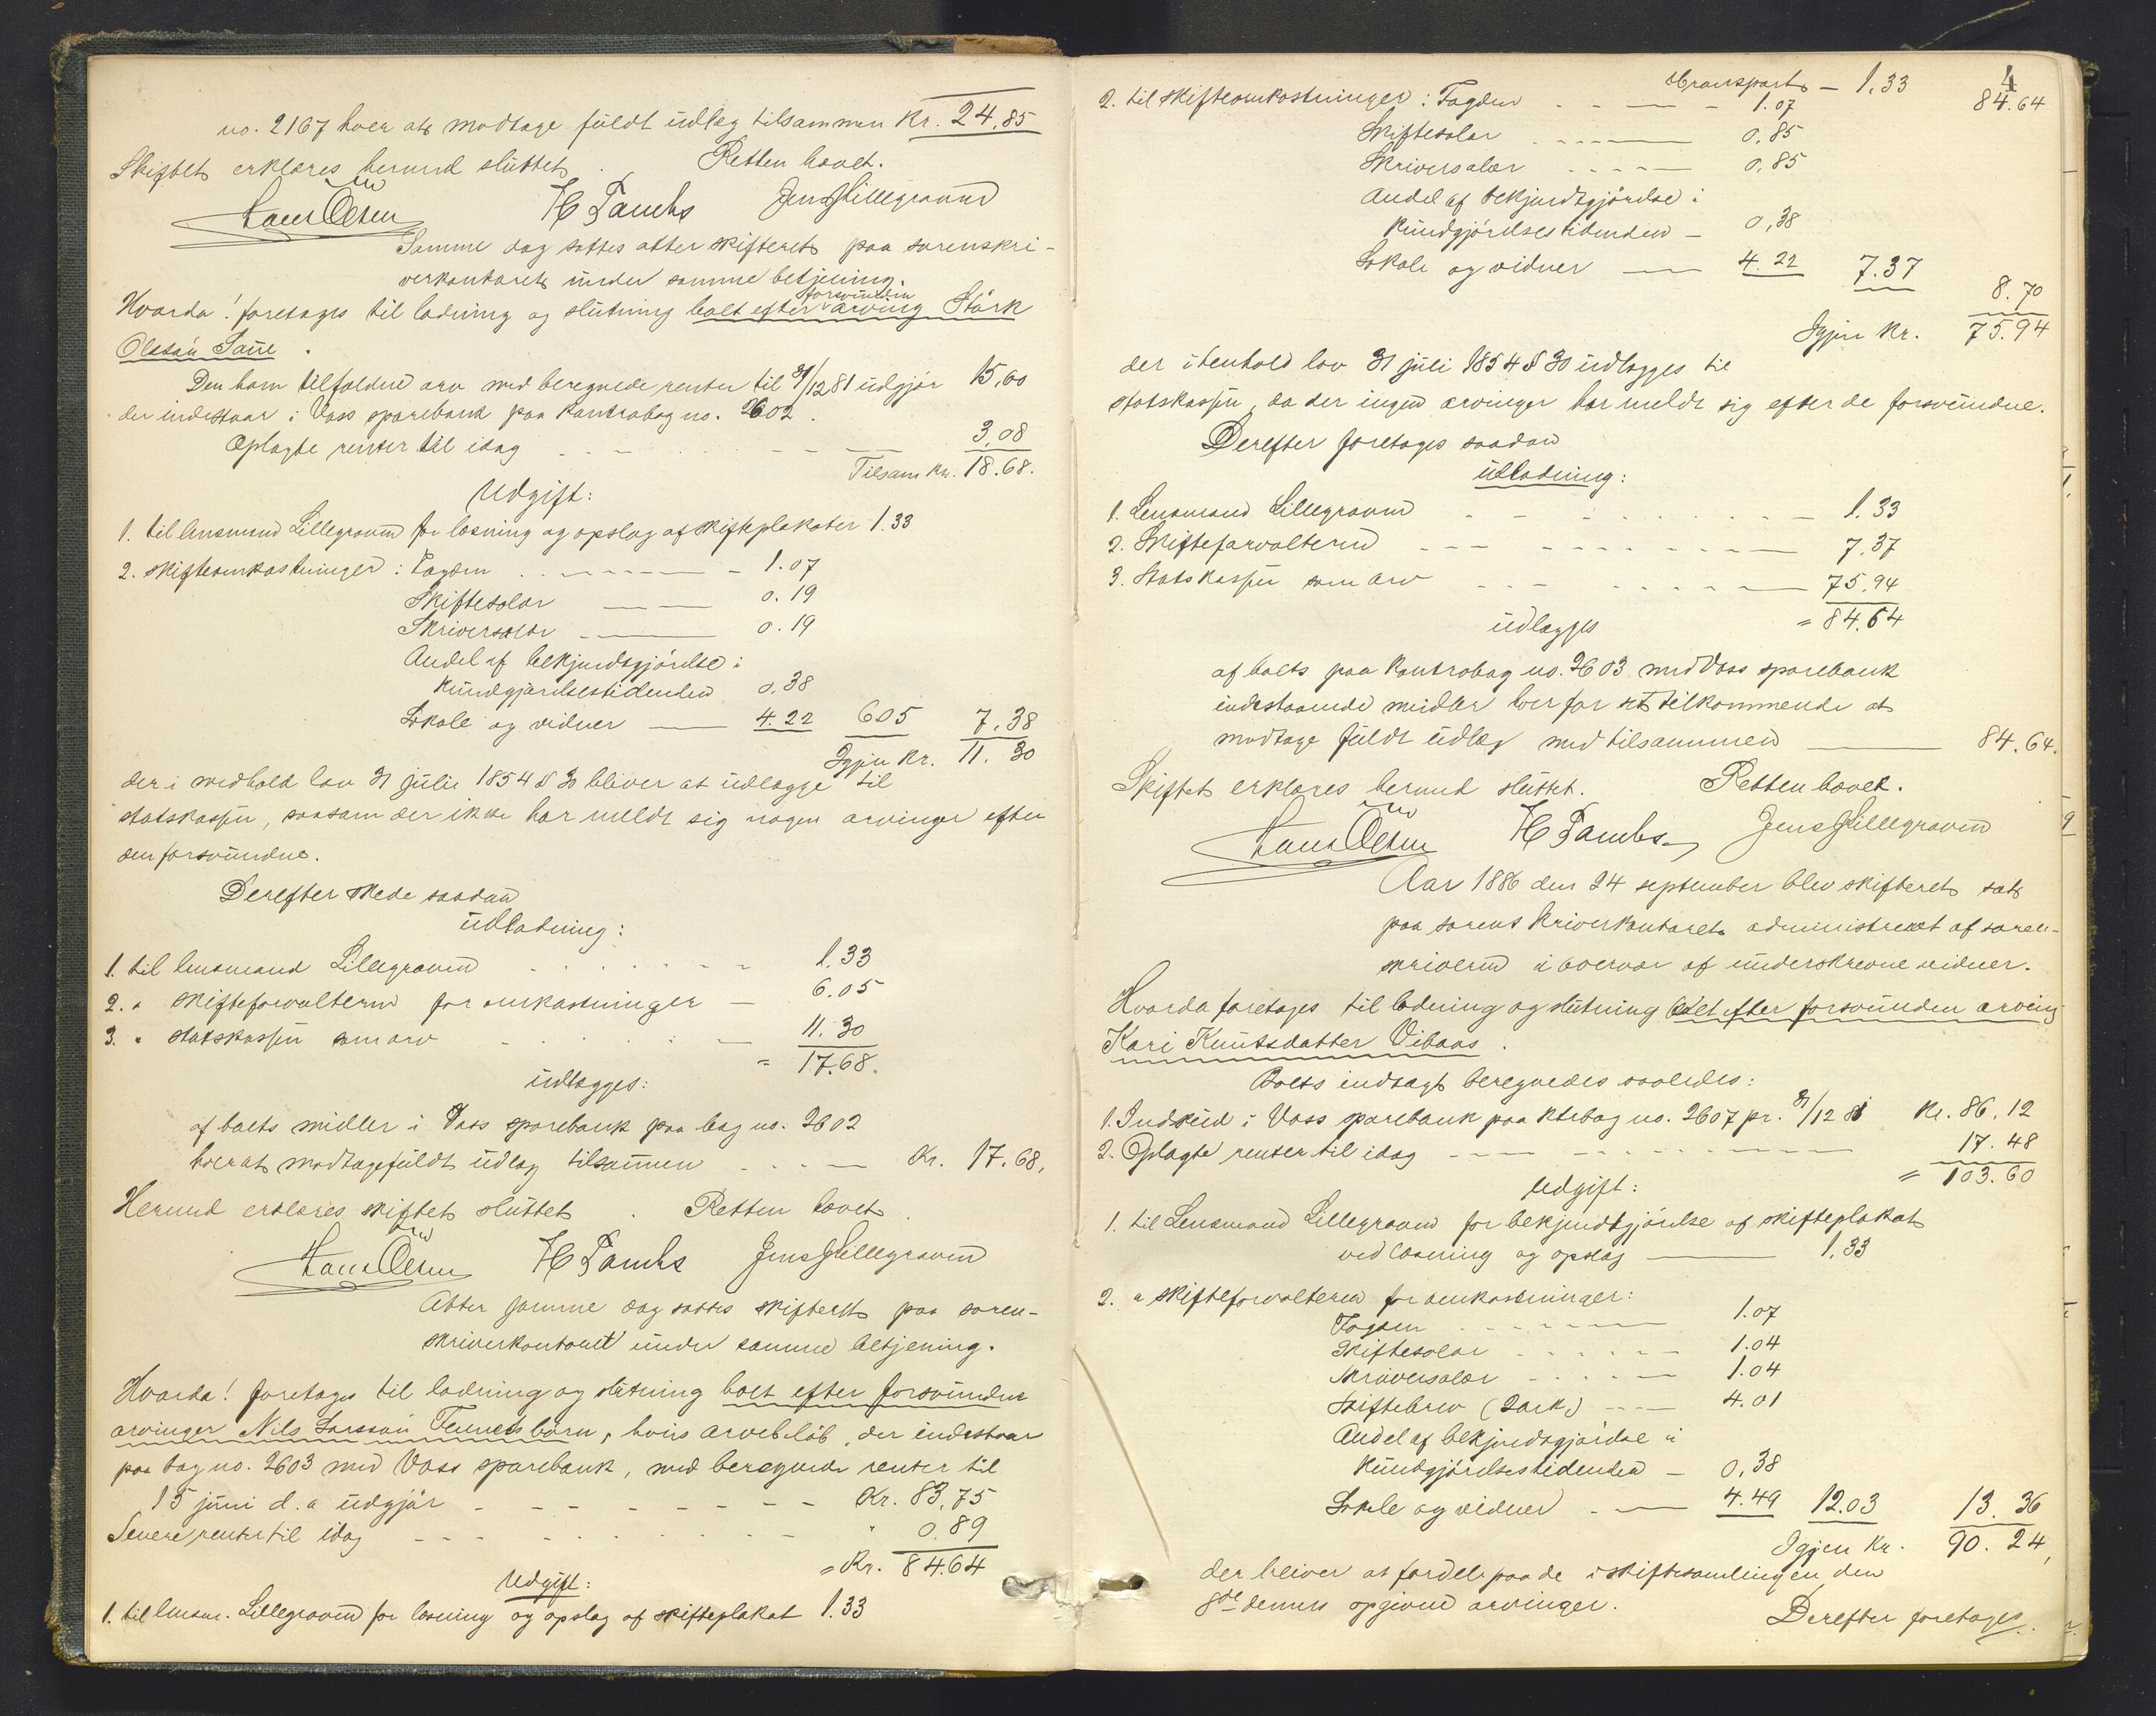 no. 2167 hver at modtage fuldt udlæg tilsammen Kr. 24,85
Skiftet erklæres hermed sluttet. Retten hævet.
Hans Olsen H Tambs Jens Lillegraven
Samme dag sattes atter skifteret paa sorenskri-
verkontoret under samme betjening.
Hvorda! foretages til lodning og slutning boet efter forsvunden arving Stårk
Olssøn Saue.
Den ham tilfaldne arv med beregnede renter til 31/12 81 udgjør 15,60
der indestaar i Voss sparebank paa kontrabog no. 2602.
Oplagte renter til idag 3,08
Tilsam. kr. 18.68.
Udgift:
1. til lensmand Lillegraven for læsning og opslag af skifteplakater 1.33
2. skifteomkostninger: Fogden 1.07
Skiftesalær 0.19
Skriversalær 0.19
Andel af bekjendtgjørelse i
Kundgjørelsestidenden 0,38
Lokale og vidner 4.22 6.05 7.38
Igjen kr. 11.30
der i medhold lov 31 juli 1854 § 30 bliver at udlægge til
statskassen, saasom der ikke har meldt sig nogen arvinger efter
den forsvundne.
Derefter skede saadan
udlodning:
1. til lensmand Lillegraven 1.33
2. " skifteforvalteren for omkostninger 6.05
3. " statskassen som arv 11.30
= 17.68.
udlægges:
af boets midler i Voss sparebank paa bog no. 2602
hver at modtage fuldt udlæg tilsammen Kr. 17.68,
Hermed erklæres skiftet sluttet. Retten hævet.
Hans Olsen H Tambs Jens Lillegraven
Atter samme dag sattes skifteret paa soren-
skriverkontoret under samme betjening.
Hvorda! foretages til lodning og slutning boet efter forsvundne
arvinger Nils Larssøn Tvinnes børn, hvis arvebeløb, der indestaar
paa bog no. 2603 med Voss sparebank, med beregnede renter til
15 juni d.a udgjør Kr. 83,75
Senere renter til idag " 0.89
= Kr. 84.64
Udgift:
1. til lensm. Lillegraven for læsning og opslag af skifteplakat 1.33
4
Transport 1,33 84.64
2. til skifteomkostninger: Fogden 1.07
Skiftesalær 0.85
Skriversalær 0.85
Andel af bekjendtgjørelse i
Kundgjørelsestidenden 0,38
Lokale og vidner 4.22 7.37 8.70
Igjen kr. 75.94
der i henhold lov 31 juli 1854 § 30 udlægges til
statskassen, da der ingen arvinger har meldt sig efter de forsvundne.
Derefter foretages saadan
udlodning:
1. Lensmand Lillegraven 1.33
2. Skifteforvalteren 7.37
3. Statskassen som arv 75.94
udlægges = 84.64
af boets paa kontrabog no. 2603 med Voss sparebank
indestaaende midler hver for sit tilkommende at
modtage fuldt udlæg med tilsammen 84.64.
Skiftet erklæres hermed sluttet. Retten hævet.
Hans Olsen H Tambs Jens Lillegraven
Aar 1886 den 24 september blev skifteret sat
paa sorenskriverkontoret administreret af soren-
skriveren i overvær af underskrevne vidner.
Hvorda foretages til lodning og slutning boet efter forsvunden arving
Kari Knutsdatter Vibaas.
Boets indtægt beregnedes saaledes:
1. Indskud i Voss sparebank paa ktrbog no. 2607 pr. 31/12 81 Kr. 86.12
2. Oplagte renter til idag 17.48
= 103.60
Udgift:
1. til Lensmand Lillegraven for bekjendtgjørelse af skifteplakat
ved læsning og opslag 1.33
2. " skifteforvalteren for omkostninger:
Fogden 1.07
Skiftesalær 1.04
Skriversalær 1.04
Skiftebrev (2 ark) 4.01
Andel af bekjendtgjørelse i
Kundgjørelsestidenden 0,38
Lokale og vidner 4.49 12.03 13.36
Igjen kr. 90.24,
der bliver at fordele paa de i skiftesamlingen den
8de dennes opgivne arvinger.
Derefter foretages